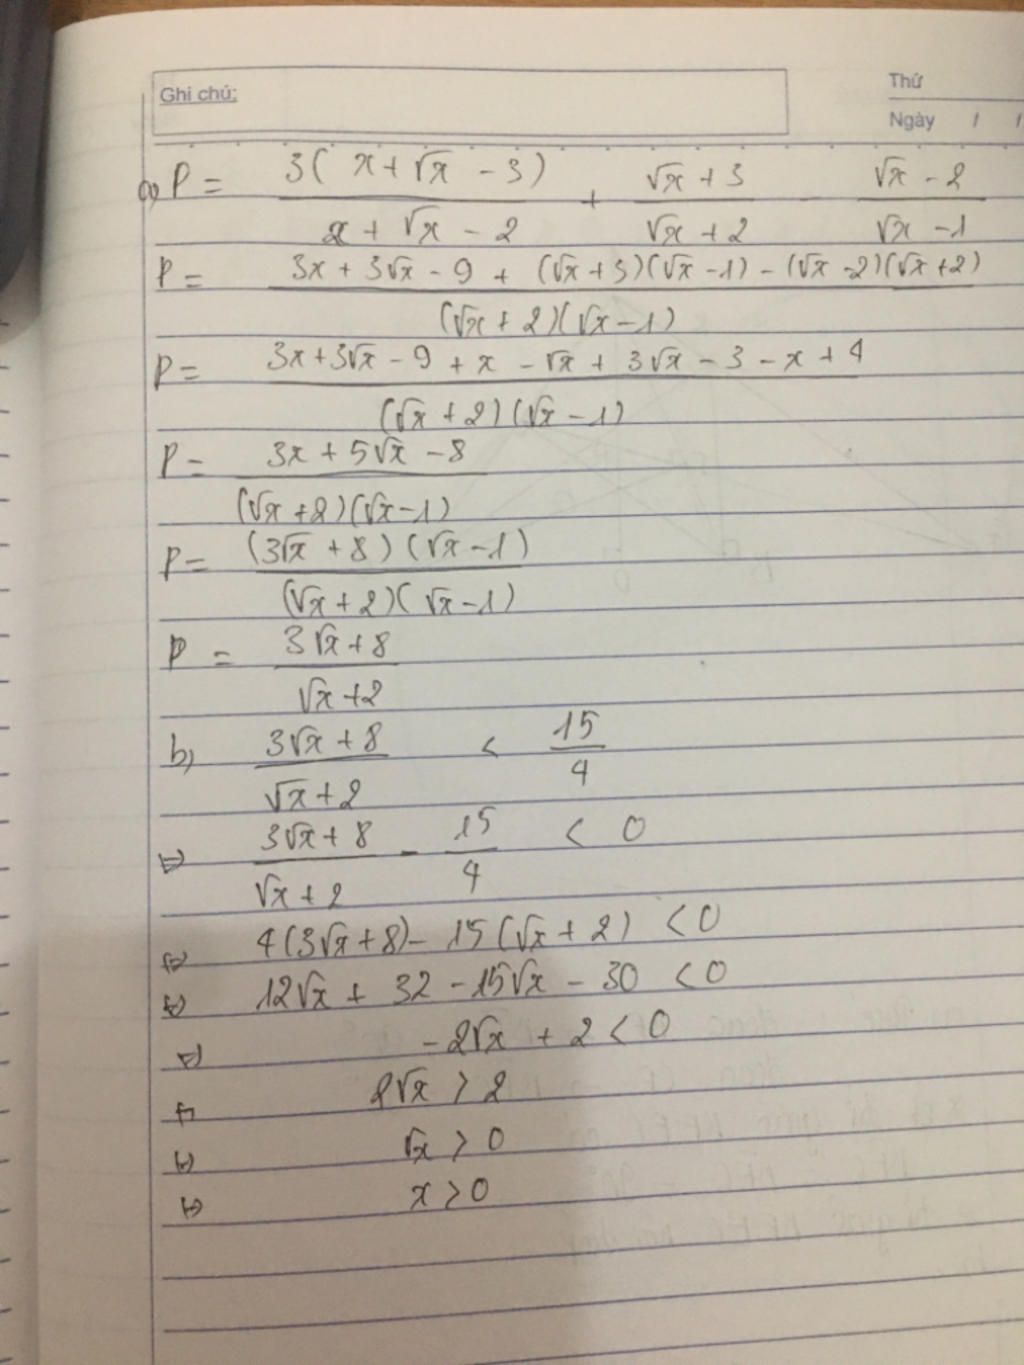 Ghi chú:
Thứ
Ngày / /
a) P = 3(x + √x - 3) / x + √x - 2 + √x + 3 / √x + 2 - √x - 2 / √x - 1
P = 3x + 3√x - 9 + (√x + 3)(√x - 1) - (√x - 2)(√x + 2) / (√x + 2)(√x - 1)
P = 3x + 3√x - 9 + x - √x + 3√x - 3 - x + 4 / (√x + 2)(√x - 1)
P = 3x + 5√x - 8 / (√x + 2)(√x - 1)
P = (3√x + 8)(√x - 1) / (√x + 2)(√x - 1)
P = 3√x + 8 / √x + 2
b) 3√x + 8 / √x + 2 < 15 / 4
⇔ 3√x + 8 / √x + 2 - 15 / 4 < 0
⇔ 4(3√x + 8) - 15(√x + 2) < 0
⇔ 12√x + 32 - 15√x - 30 < 0
⇔ -2√x + 2 < 0
⇔ 2√x > 2
⇔ √x > 0
⇔ x > 0